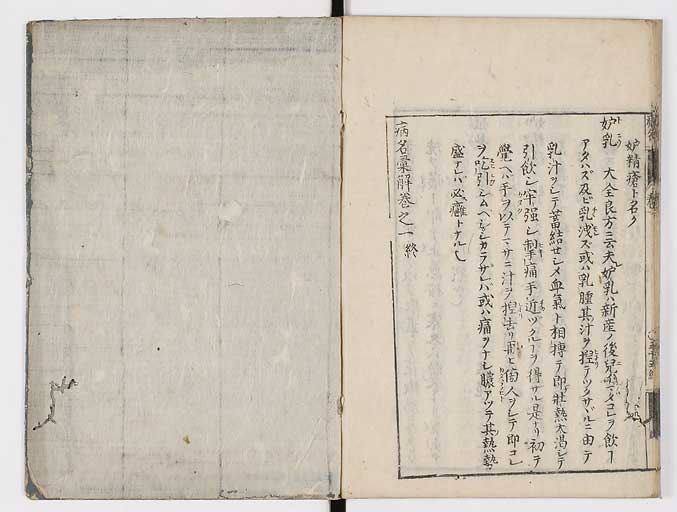 妒精瘡ト名ク
妒乳 大全良方ニ云夫妒乳ハ新産ノ後兒イマタコレヲ飲
アタハズ及ヒ乳洩ズ或ハ乳腫其汁ヲ捏テツクサヾルニ由テ
乳汁ヲシテ蓄結せシメ血氣ト相搏テ即壯熱大渇シテ
引飲シ牢强シ掣痛手近ヅクヿヲ得ザル是ナリ初テ
覺ヘハ手ヲ以テ汁ヲ捏去リ更ニ傍人ヲシテ即コレ
ヲ吮引シムヘシシカラザレハ或ハ痛ヲナシ膿アツテ其熱勢
盛ナレバ必癰トナル
病名彙解巻之一終